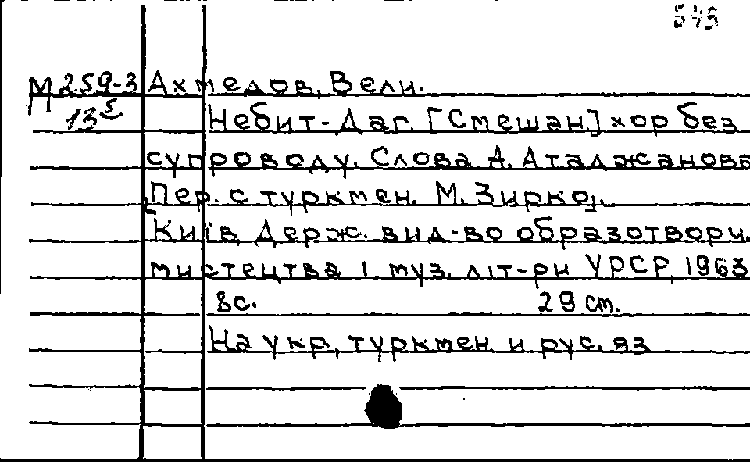 545
М 259-3 Ахмедов, Вели.
13⁵ Небит-Даг. [Смешан.] хор без
супроводу. Слова А. Атаджанова
Пер. с туркмен. М. Зирко,.
Київ, Держ. вид-во образотворч.
мистецтва і муз. літ-ри УРСР, 1963
8с. 29 ст.
На укр., туркмен. и рус. яз